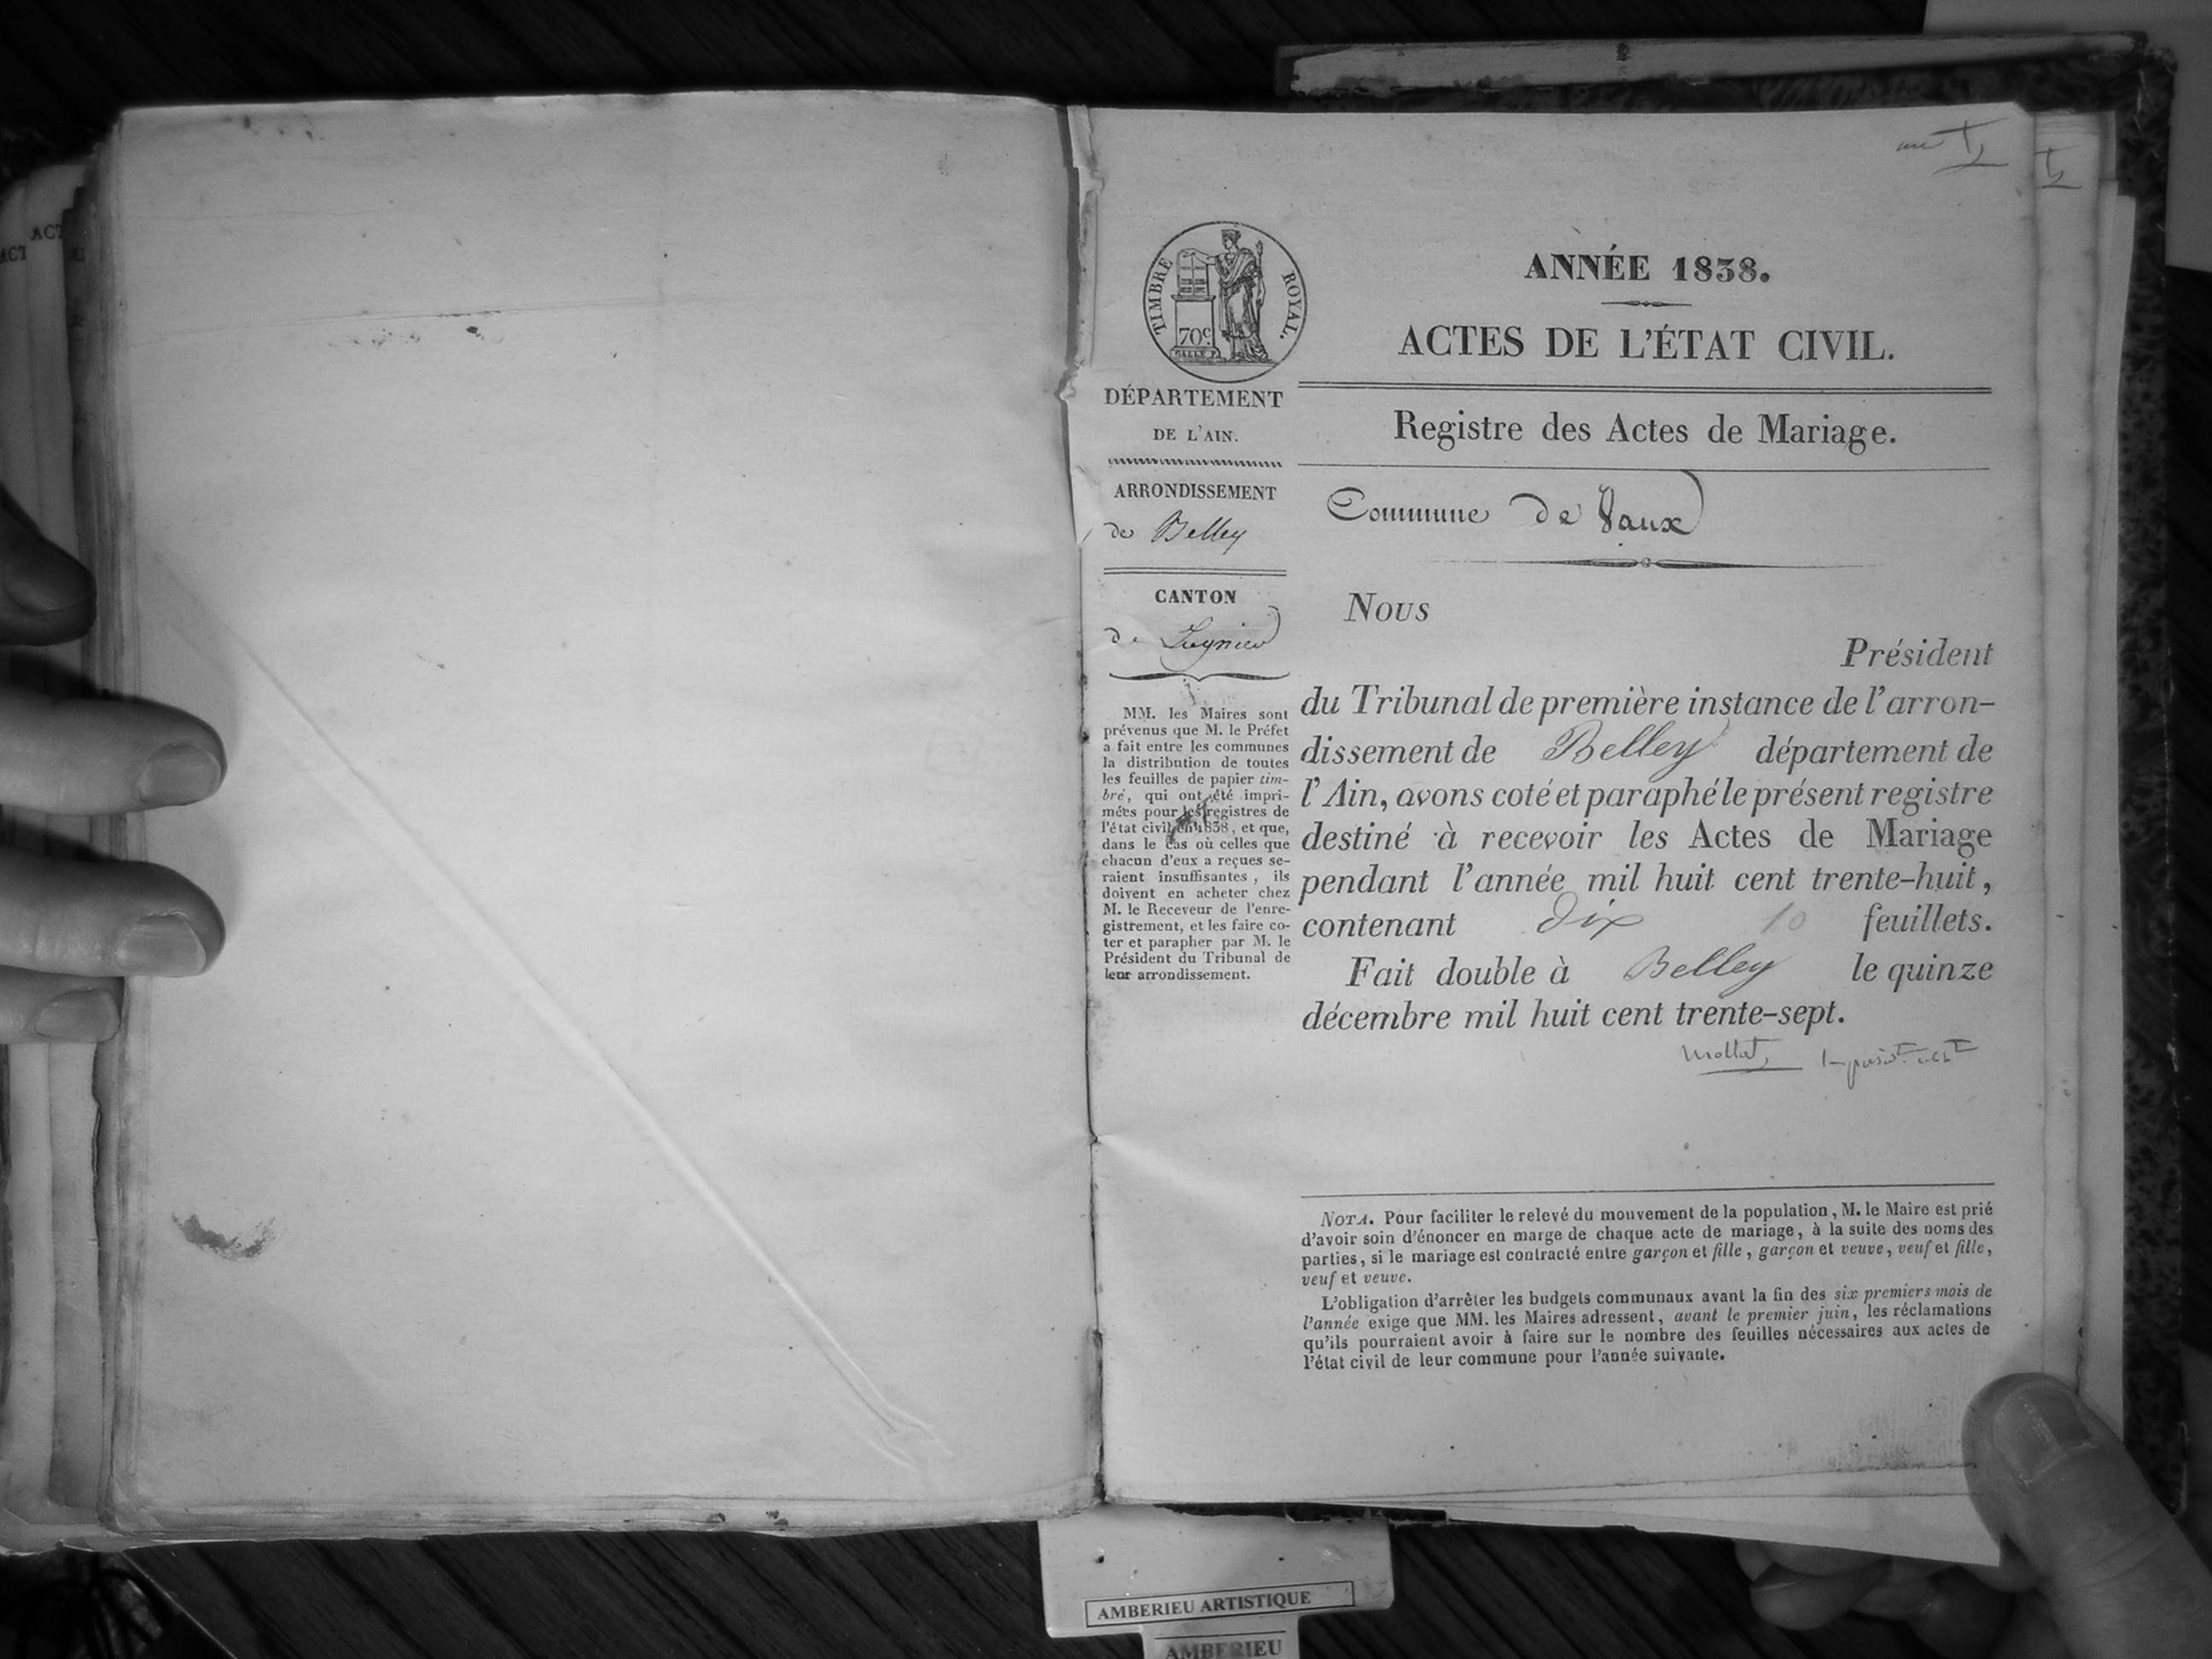 ACT
ACT
TIMBRE ROYAL.
70c
DÉPARTEMENT
DE L'AIN.
ARRONDISSEMENT
de Belley
CANTON
de Lagnieu
MM. les Maires sont
prévenus que M. le Préfet
a fait entre les communes
la distribution de toutes
les feuilles de papier tim-
bré, qui ont été impri-
mées pour les registres de
l'état civil en 1838, et que,
dans le cas où celles que
chacun d'eux a reçues se-
raient insuffisantes, ils
doivent en acheter chez
M. le Receveur de l'enre-
gistrement, et les faire co-
ter et parapher par M. le
Président du Tribunal de
leur arrondissement.
ANNÉE 1838.
ACTES DE L'ÉTAT CIVIL.
Registre des Actes de Mariage.
Commune de Vaux
Nous
Président
du Tribunal de première instance de l'arron-
dissement de Belley département de
l'Ain, avons coté et paraphé le présent registre
destiné à recevoir les Actes de Mariage
pendant l'année mil huit cent trente-huit,
contenant dix 10 feuillets.
Fait double à Belley le quinze
décembre mil huit cent trente-sept.
Mollat
NOTA. Pour faciliter le relevé du mouvement de la population, M. le Maire est prié
d'avoir soin d'énoncer en marge de chaque acte de mariage, à la suite des noms des
parties, si le mariage est contracté entre garçon et fille, garçon et veuve, veuf et fille,
veuf et veuve.
L'obligation d'arrêter les budgets communaux avant la fin des six premiers mois de
l'année exige que MM. les Maires adressent, avant le premier juin, les réclamations
qu'ils pourraient avoir à faire sur le nombre des feuilles nécessaires aux actes de
l'état civil de leur commune pour l'année suivante.
AMBERIEU ARTISTIQUE
AMBERIEU